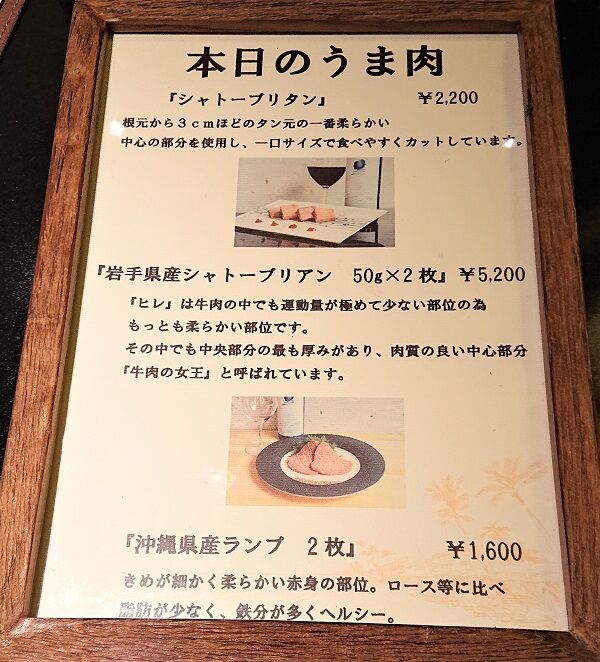 本日のうま肉
『シャトーブリタン』 ￥2,200
根元から３ｃｍほどのタン元の一番柔らかい
中心の部分を使用し、一口サイズで食べやすくカットしています。
『岩手県産シャトーブリアン 50g×２枚』 ￥5,200
『ヒレ』は牛肉の中でも運動量が極めて少ない部位の為
もっとも柔らかい部位です。
その中でも中央部分の最も厚みがあり、肉質の良い中心部分
『牛肉の女王』と呼ばれています。
『沖縄県産ランプ ２枚』 ￥1,600
きめが細かく柔らかい赤身の部位。ロース等に比べ
脂肪が少なく、鉄分が多くヘルシー。